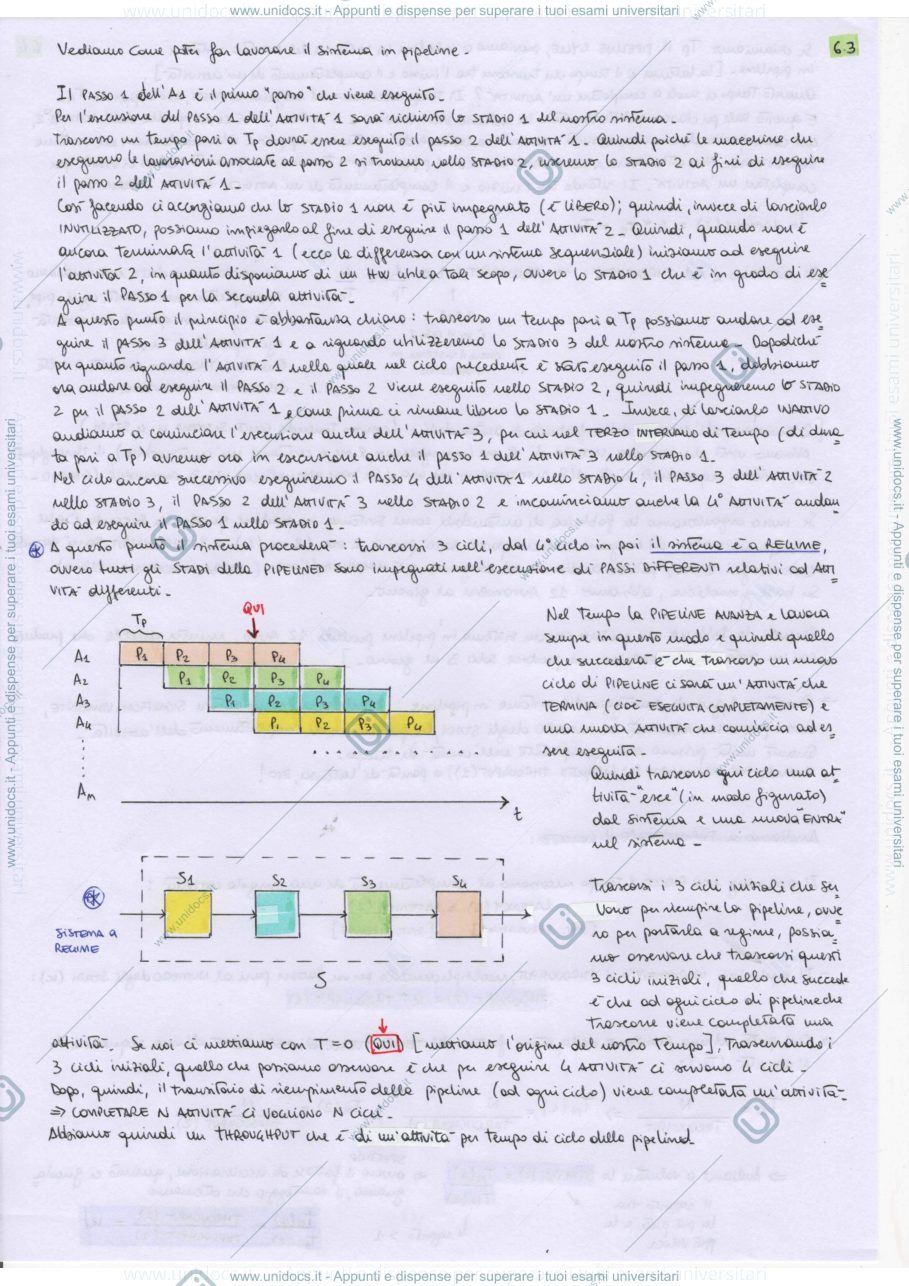 www.unidocs.it - Appunti e dispense per superare i tuoi esami universitari
6.3
Vediamo come poter far lavorare il sistema in pipeline.
Il PASSO 1 dell'A1 è il primo "passo" che viene eseguito.
Per l'esecuzione del PASSO 1 dell'ATTIVITÀ 1 sarà richiesto lo STADIO 1 del nostro sistema.
Trascorso un tempo pari a Tp dovrà essere eseguito il PASSO 2 dell'ATTIVITÀ 1. Quindi poiché le macchine che
eseguono le lavorazioni associate al passo 2 si trovano nello STADIO 2, useremo lo STADIO 2 ai fini di eseguire
il passo 2 dell'ATTIVITÀ 1.
Così facendo ci accorgiamo che lo STADIO 1 non è più impegnato (È LIBERO); quindi, invece di lasciarlo
INUTILIZZATO, possiamo impiegarlo al fine di eseguire il passo 1 dell'ATTIVITÀ 2. Quindi, quando non è
ancora terminata l'attività 1 (ecco la differenza con un sistema sequenziale) iniziamo ad eseguire
l'attività 2, in quanto disponiamo di un HW utile a tale scopo, ovvero lo STADIO 1 che è in grado di ese=
guire il PASSO 1 per la seconda attività.
A questo punto il principio è abbastanza chiaro: trascorso un tempo pari a Tp possiamo andare ad ese=
guire il PASSO 3 dell'ATTIVITÀ 1 e a riguardo utilizzeremo lo STADIO 3 del nostro sistema. Dopodiché
per quanto riguarda l'ATTIVITÀ 1 nella quale nel ciclo precedente è stato eseguito il passo 1, dobbiamo
ora andare ad eseguire il PASSO 2 e il PASSO 2 viene eseguito nello STADIO 2, quindi impegneremo lo STADIO
2 per il PASSO 2 dell'ATTIVITÀ 1 e come prima ci rimane libero lo STADIO 1. Invece, di lasciarlo INATTIVO
andiamo a cominciare l'esecuzione anche dell'ATTIVITÀ 3, per cui nel TERZO INTERVALLO di Tempo (di dura
ta pari a Tp) avremo ora in esecuzione anche il passo 1 dell'ATTIVITÀ 3 nello STADIO 1.
Nel ciclo ancora successivo eseguiremo il PASSO 4 dell'ATTIVITÀ 1 nello STADIO 4, il PASSO 3 dell'ATTIVITÀ 2
nello STADIO 3, il PASSO 2 dell'ATTIVITÀ 3 nello STADIO 2 e incominciamo anche la 4° ATTIVITÀ andan
do ad eseguire il PASSO 1 nello STADIO 1.
* A questo punto il sistema procederà: trascorsi 3 cicli, dal 4° ciclo in poi il sistema è a REGIME,
ovvero tutti gli STADI della PIPELINED sono impegnati nell'esecuzione di PASSI DIFFERENTI relativi ad ATTI
VITÀ differenti.
QUI
Tp
A1 P1 P2 P3 P4
A2 P1 P2 P3 P4
A3 P1 P2 P3 P4
A4 P1 P2 P3 P4
Am
t
Nel Tempo la PIPELINE AVANZA e lavora
sempre in questo modo e quindi quello
che succederà è che trascorso un nuovo
ciclo di PIPELINE ci sarà un'ATTIVITÀ che
TERMINA (CIOÈ ESEGUITA COMPLETAMENTE) e
una nuova ATTIVITÀ che comincia ad es=
sere eseguita.
Quindi trascorso ogni ciclo una at=
tività "esce" (in modo figurato)
dal sistema e una nuova "ENTRA"
nel sistema.
S1 S2 S3 S4
*
SISTEMA A
REGIME
S
Trascorsi i 3 cicli iniziali che ser
vono per riempire la pipeline, ovve=
ro per portarla a regime, possia=
mo osservare che trascorsi questi
3 cicli iniziali, quello che succede
è che ad ogni ciclo di pipeline che
trascorre viene completata una
attività. Se noi ci mettiamo con T=0 (QUI) [mettiamo l'origine del nostro Tempo], Trascurando i
3 cicli iniziali, quello che possiamo osservare è che per eseguire 4 ATTIVITÀ ci servono 4 cicli.
Dopo, quindi, il transitorio di riempimento della pipeline (ad ogni ciclo) viene completata un'attività.
⇒ COMPLETARE N ATTIVITÀ CI VOGLIONO N CICLI.
Abbiamo quindi un THROUGHPUT che è di un'attività per tempo di ciclo della pipelined
www.unidocs.it - Appunti e dispense per superare i tuoi esami universitari